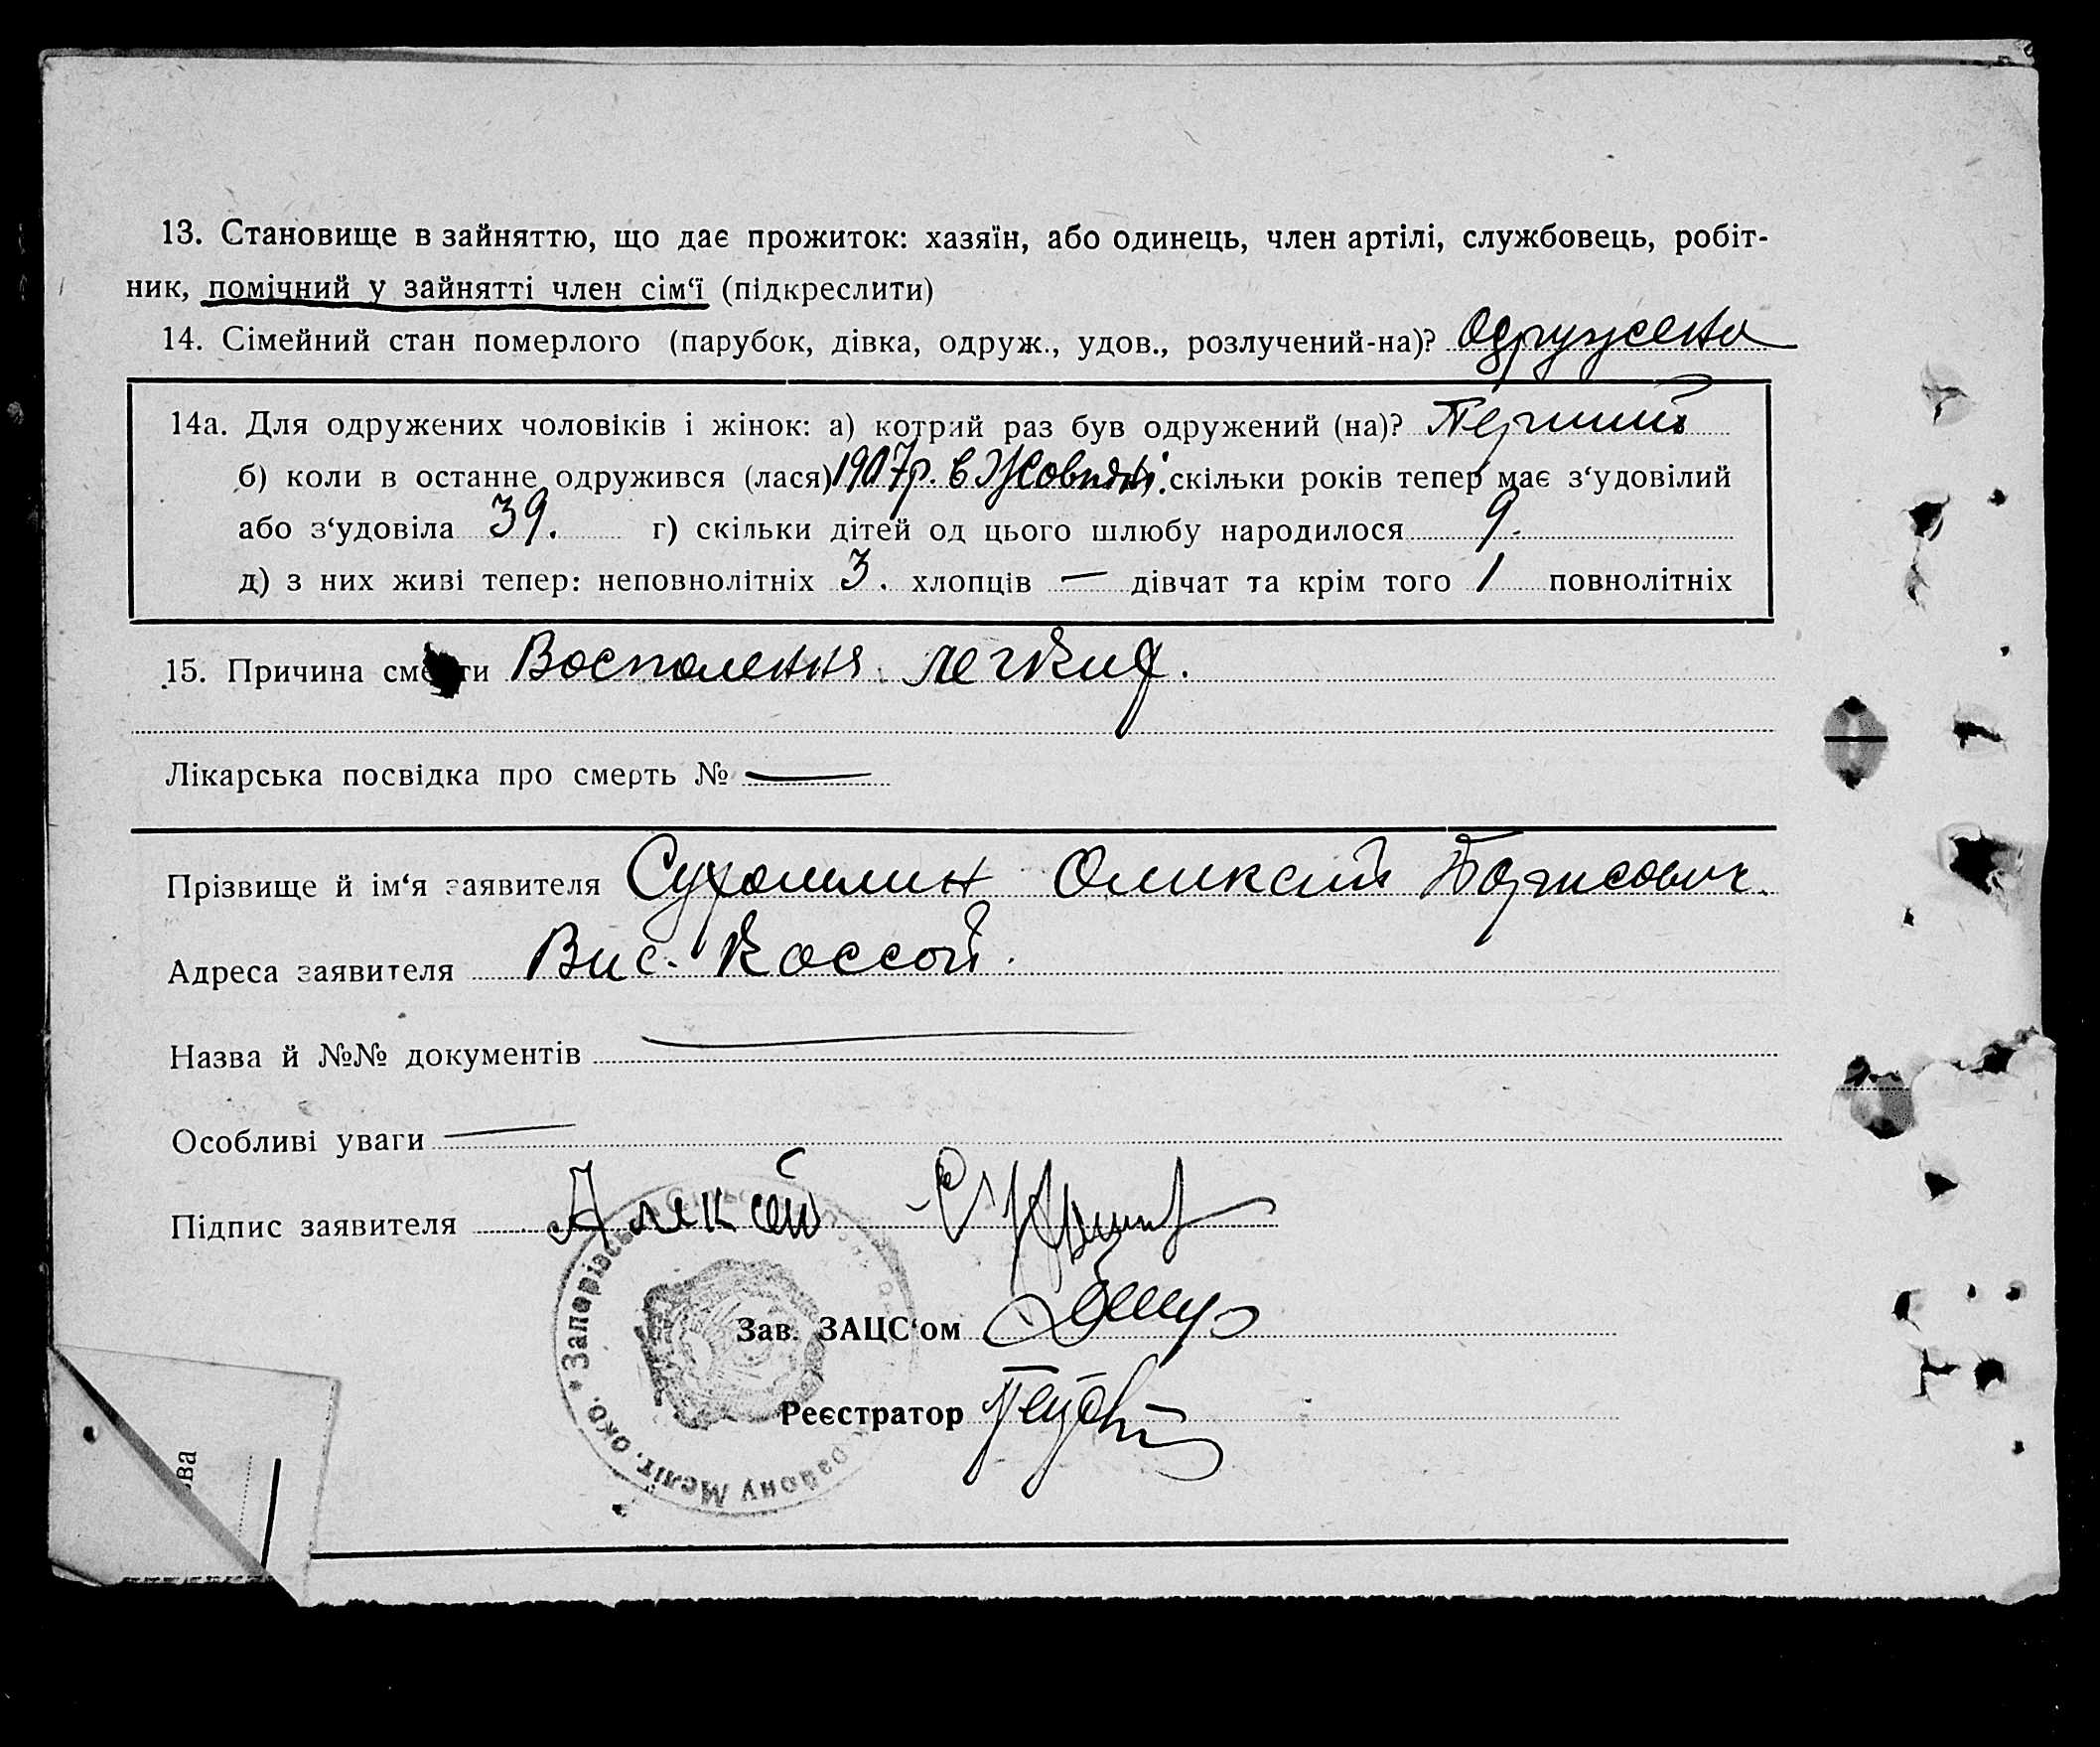 13. Становище в зайняттю, що дає прожиток: хазяїн, або одинець, член артілі, службовець, робіт-
ник, помічний у зайнятті член сім‘ї (підкреслити)
14. Сімейний стан померлого (парубок, дівка, одруж., удов., розлучений-на)? Одружена
14а. Для одружених чоловіків і жінок: а) котрий раз був одружений (на)? Перший
б) коли в останне одружився (лася) 1907р. в Жовтні. скільки років тепер має з‘удовілий
або з‘удовіла 39. г) скільки дітей од цього шлюбу народилося 9.
д) з них живі тепер: неповнолітніх 3. хлопців — дівчат та крім того 1 повнолітніх
15. Причина смерти Воспалення легких.
Лікарська посвідка про смерть № —
Прізвище й ім‘я заявителя Сухомлин Олексій Борисович.
Адреса заявителя Вис. Коссой.
Назва й №№ документів —
Особливі уваги —
Підпис заявителя Алексей
Зав. ЗАЦС‘ом
Реєстратор
Запорівська району Меліт. окр.
ва